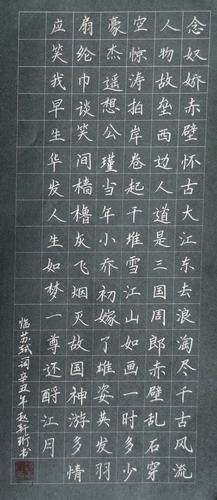 念奴娇赤壁怀古大江东去浪淘尽千古风流
人物故垒西边人道是三国周郎赤壁乱石穿
空惊涛拍岸卷起千堆雪江山如画一时多少
豪杰遥想公瑾当年小乔初嫁了雄姿英发羽
扇纶巾谈笑间樯橹灰飞烟灭故国神游多情
应笑我早生华发人生如梦一尊还酹江月
临苏轼词辛丑年赵轩珩书